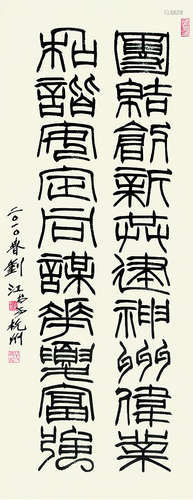 團結創新共建神州偉業
和諧安定同謀華夏富強
二〇一〇春劉江書於杭州